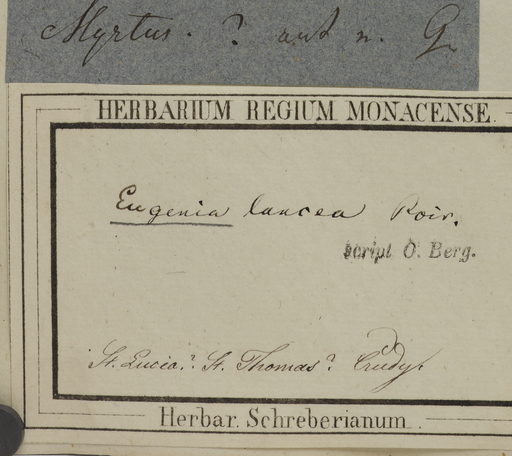 Myrtus. ? aut n. G.
HERBARIUM REGIUM MONACENSE.
Eugenia lancea Poir.
script O. Berg.
St. Lucia? St. Thomas? Crudy.
Herbar. Schreberianum